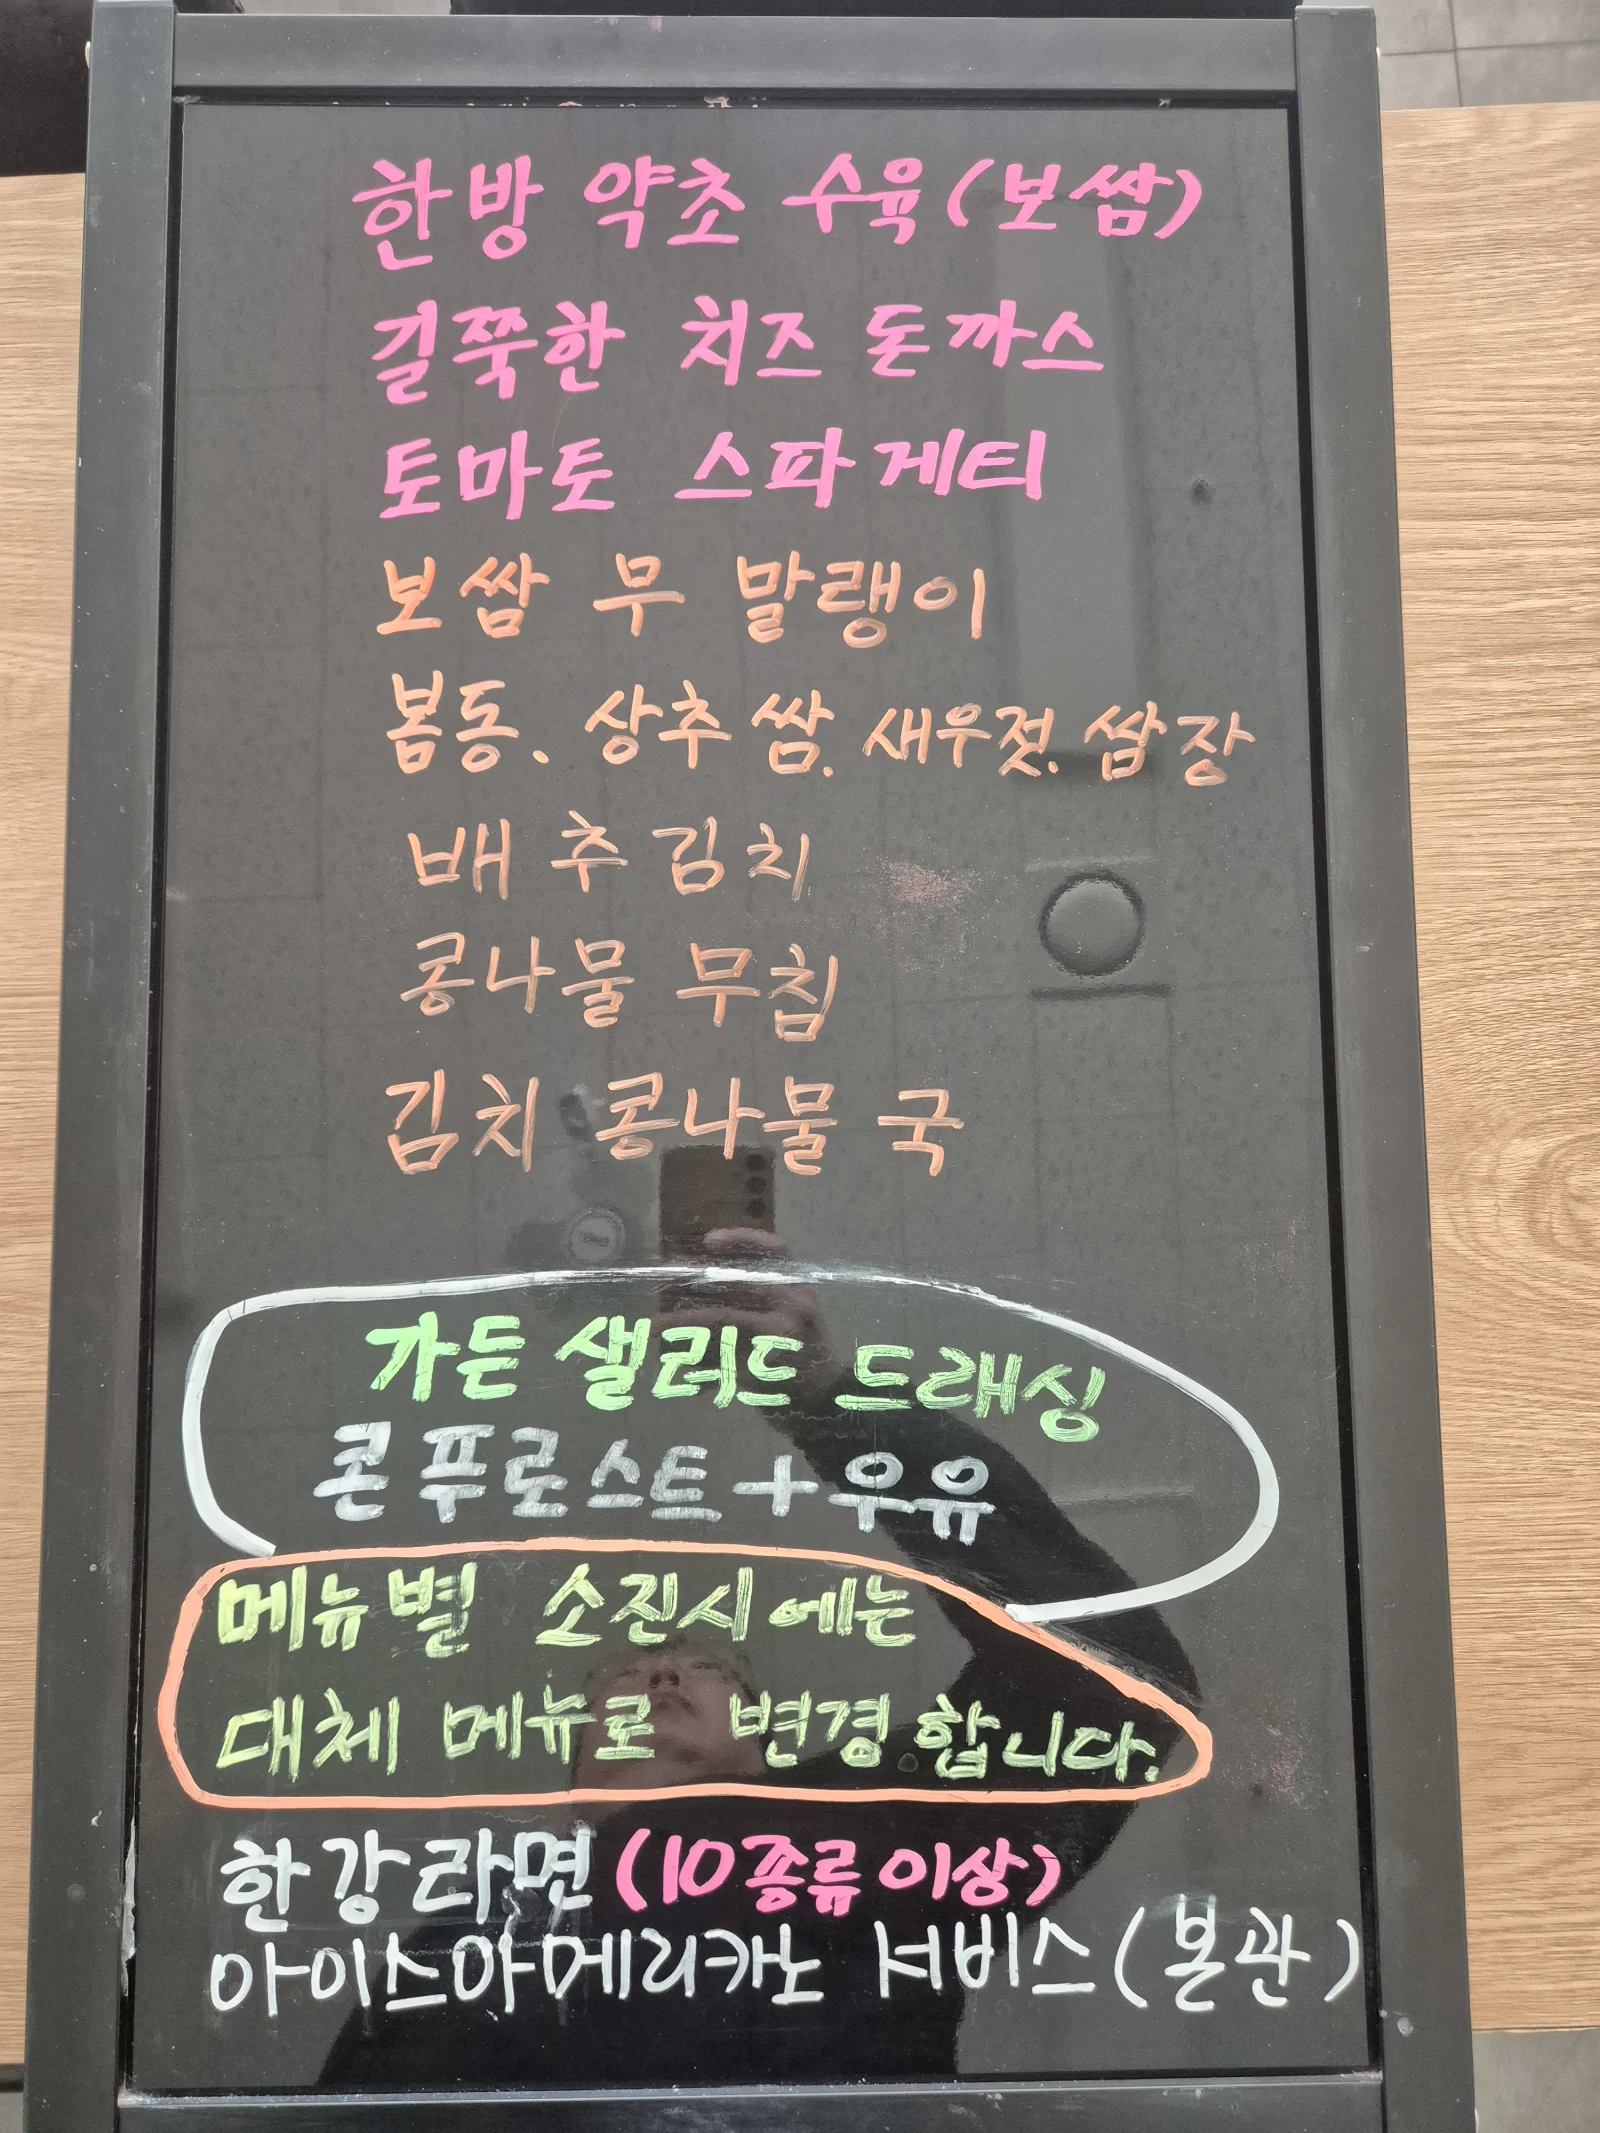 한방 약초 수육(보쌈)
길쭉한 치즈 돈까스
토마토 스파게티
보쌈 무 말랭이
봄동. 상추쌈. 새우젓. 쌈장
배추김치
콩나물 무침
김치 콩나물 국
가든 샐러드 드래싱
콘푸로스트+우유
메뉴별 소진시에는
대체 메뉴로 변경합니다.
한강라면(10종류이상)
아이스아메리카노 서비스(본관)